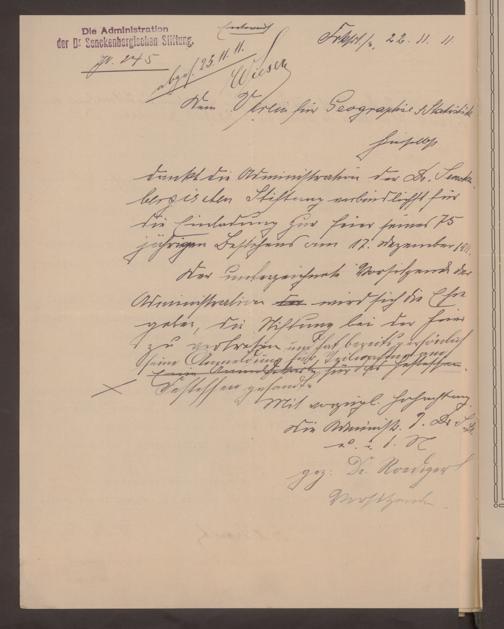 Die Administration
der Dr Senckenbergischen Stiftung.
No. 245
Entwurf
abges. 23.11.11.
Frkft a/M, 22. 11. 11
Dem Verein für Geographie & Statistik
hierselbst
dankt die Administration der Dr. Sencken-
bergischen Stiftung verbindlichst für
die Einladung zur Feier seines 75
jährigen Bestehens am 17. Dezember
Der unterzeichnete Vorsitzende der
Administration wird sich die Ehre
geben, die Stiftung bei der Feier
zu vertreten und hat bereits persönlich
seine Anmeldung für Teilnahme am
Festessen gesandt.
Mit vorzügl. Hochachtung
Die Administr. d. Dr. S.
gez: Dr. Roediger
Vorsitzender